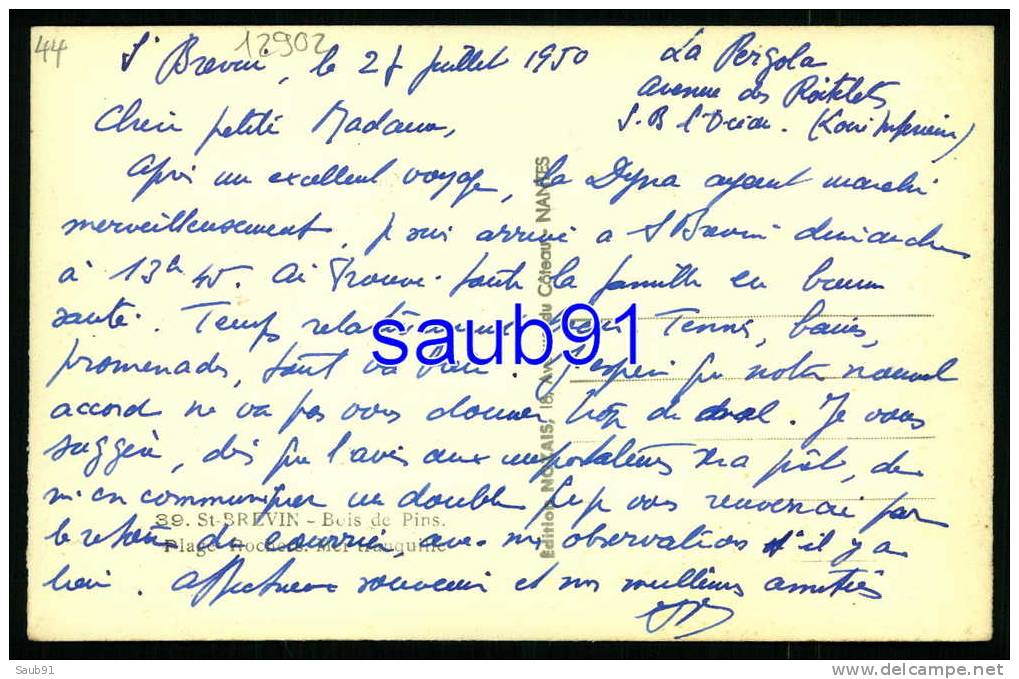 44
12902
St Brevin, le 27 juillet 1950
La Pergola
avenue des Roitelets
S. B. l'Océan. (Loire Inférieure)
Chère petite Madame,
Après un excellent voyage, la Dyna ayant marché
merveilleusement, je suis arrivé à St Brevin dimanche
à 13h 45. Ai trouvé toute la famille en bonne
santé. Temps Tennis, bains,
promenades, tout va bien. J'espère que notre nouvel
accord ne va pas vous donner trop de mal. Je vous
suggère, dès que l'avis aux importateurs sera prêt, de
m'en communiquer un double que je vous renverrai par
le retour du courrier, avec mes observations s'il y a
lieu. Affectueux souvenir et nos meilleures amitiés
saub91
39. St-BREVIN - Bois de Pins.
Plage Rochers. Mer tranquille
Edition NOZAIS, 18, Av. du Côteau - NANTES
Saub91
www.delcampe.net